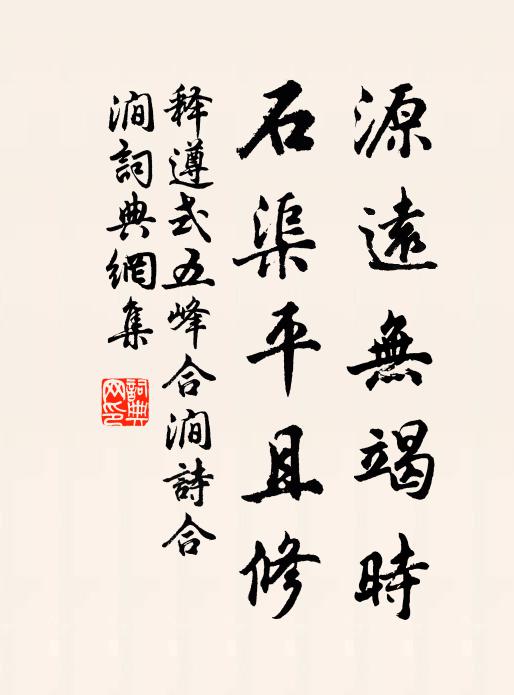 源遠無竭時
石渠平且修
释遵式五峰合澗詩合
澗詞典網集
詞典網印